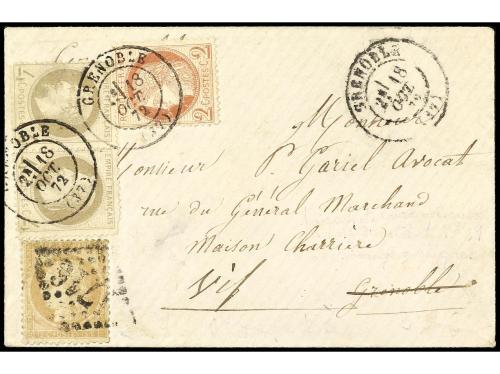 GRENOBLE
2E
18
OCT.
72
(37)
2 POSTES 2
GRENOBLE
18
OCT.
72
(37)
EMPIRE FRANÇAIS
GRENOBLE
2E
18
OCT.
72
(37)
Monsieur
Monsieur P. Gariel Avocat
rue du Général Marchand
Maison Charrière
Vif Grenoble